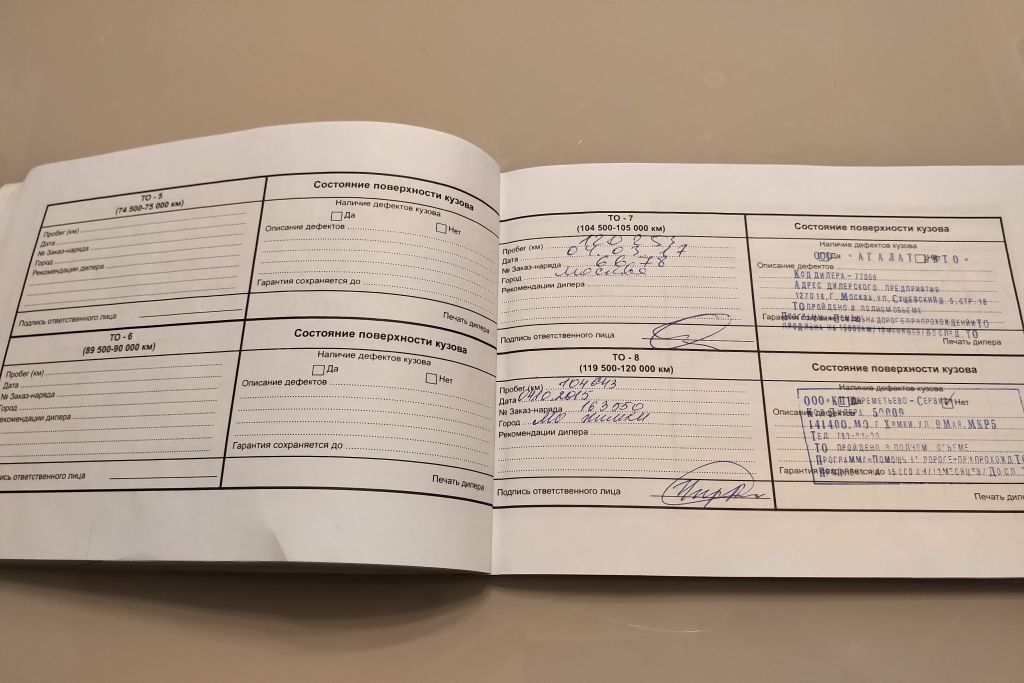 ТО - 5
(74 500-75 000 км)
Пробег (км)
Дата
№ Заказ-наряда
Город
Рекомендации дилера
Подпись ответственного лица
Состояние поверхности кузова
Наличие дефектов кузова
Да
Нет
Описание дефектов
Гарантия сохраняется до
Печать дилера
ТО - 6
(89 500-90 000 км)
Пробег (км)
Дата
№ Заказ-наряда
Город
Рекомендации дилера
Подпись ответственного лица
Состояние поверхности кузова
Наличие дефектов кузова
Да
Нет
Описание дефектов
Гарантия сохраняется до
Печать дилера
ТО - 7
(104 500-105 000 км)
Пробег (км)
Дата
№ Заказ-наряда 6678
Город Москва
Рекомендации дилера
Подпись ответственного лица
Состояние поверхности кузова
Наличие дефектов кузова
Да
ООО "АГАЛАТ АВТО"
Описание дефектов
Код дилера - 77056
Адрес дилерского предприятия
127018, г. Москва, ул. Сущевский в. 5, стр. 18
ТО пройдено в полном объеме
Печать дилера
ТО - 8
(119 500-120 000 км)
Пробег (км) 104643
Дата 04.10.2015
№ Заказ-наряда 163050
Город МО Химки
Рекомендации дилера
Подпись ответственного лица
Состояние поверхности кузова
Наличие дефектов кузова
Нет
Описание дефектов
Код дилера 50009
141400, МО, г. Химки, ул. 9 Мая, МКР8
Тел.
ТО пройдено в полном объеме
Гарантия сохраняется до
Печать